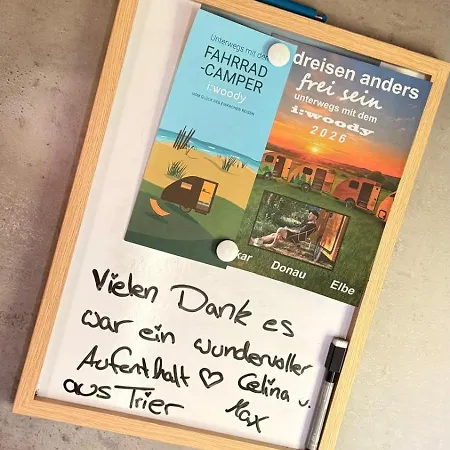 Unterwegs mit dem
FAHRRAD
-CAMPER
i:woody
dreisen anders
frei sein
unterwegs mit dem
i:woody
2026
kar
Donau
Elbe
Vielen Dank es
war ein wundervoller
Aufenthalt ♡ Celina u.
aus Trier Max